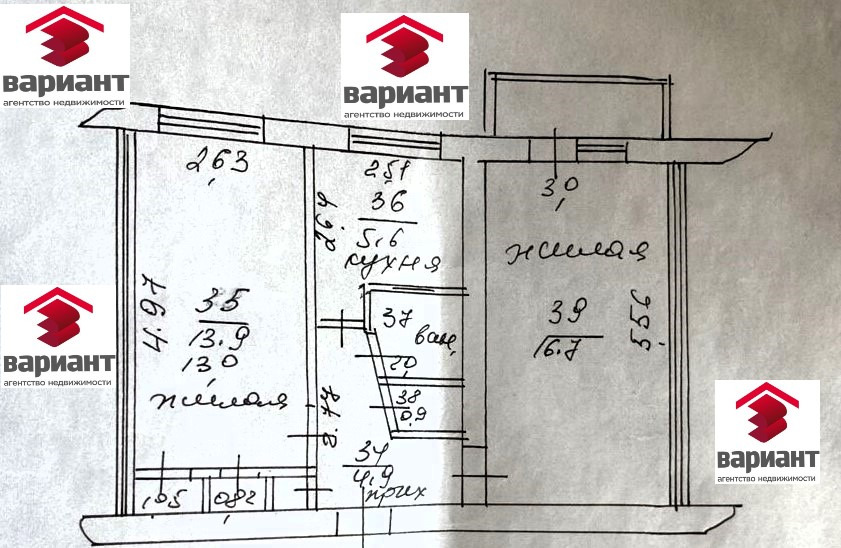 ВАРИАНТ
агентство недвижимости
ВАРИАНТ
агентство недвижимости
2,63
2,51
36
5,6
кухня
2.64
3,0
жилая
39
16.7
5.56
ВАРИАНТ
агентство недвижимости
4.97
35
13.9
13,0
жилая
37
ван,
2,0
38
0,9
2.77
34
4,9
прих
1,05
0,82
ВАРИАНТ
агентство недвижимости